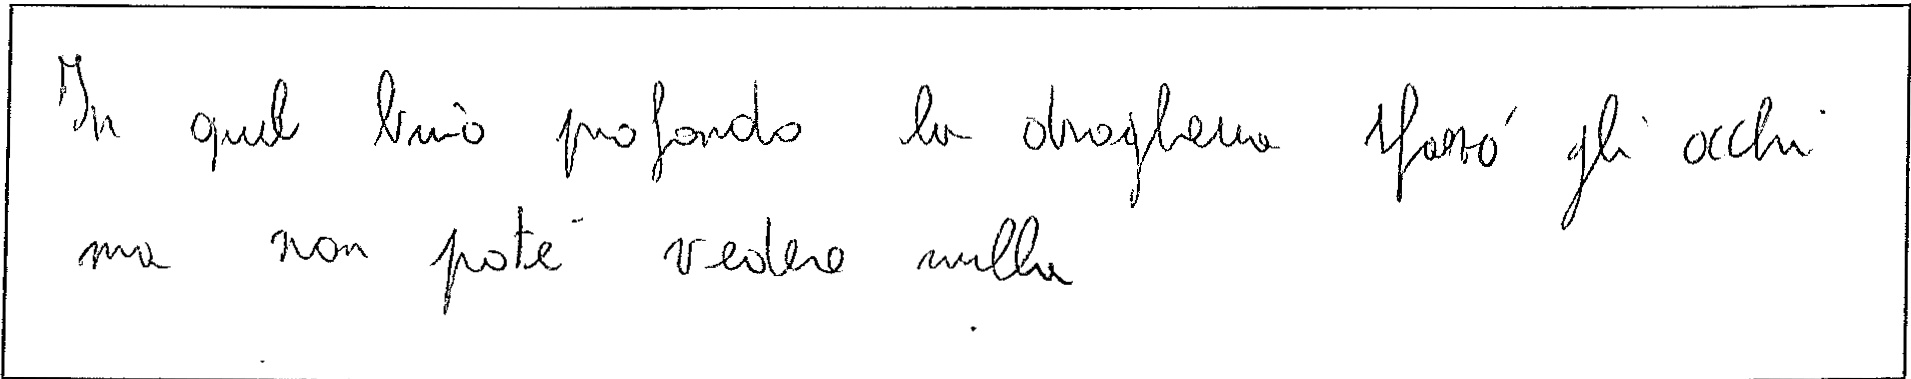 In quel buio profondo la droghiera sforzó gli occhi
ma non poté vedere nulla